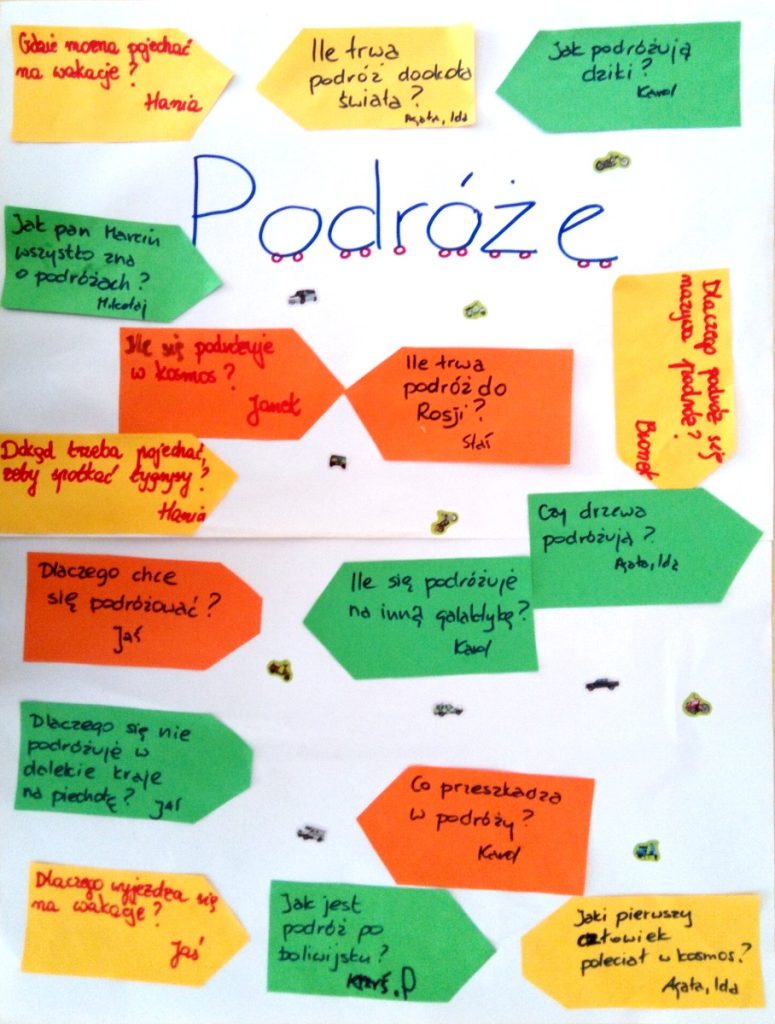 Gdzie można pojechać
na wakacje?
Hania
Ile trwa
podróż dookoła
świata?
Agata, Ida
Jak podróżują
dziki?
Karol
Podróże
Jak pan Marcin
wszystko zna
o podróżach?
Mikołaj
Dlaczego podróż się
nazywa podróż?
Ile się podróżuje
w kosmos?
Janek
Ile trwa
podróż do
Rosji?
Staś
Dokąd trzeba pojechać,
żeby spotkać tygrysy?
Hania
Czy drzewa
podróżują?
Agata, Ida
Dlaczego chce
się podróżować?
Jaś
Ile się podróżuje
na inną galaktykę?
Karol
Dlaczego się nie
podróżuje w
dalekie kraje
na piechotę? Jaś
Co przeszkadza
w podróży?
Karol
Dlaczego wyjeżdża się
na wakacje?
Jaś
Jak jest
podróż po
boliwijsku?
Jaki pierwszy
człowiek
poleciał w kosmos?
Agata, Ida